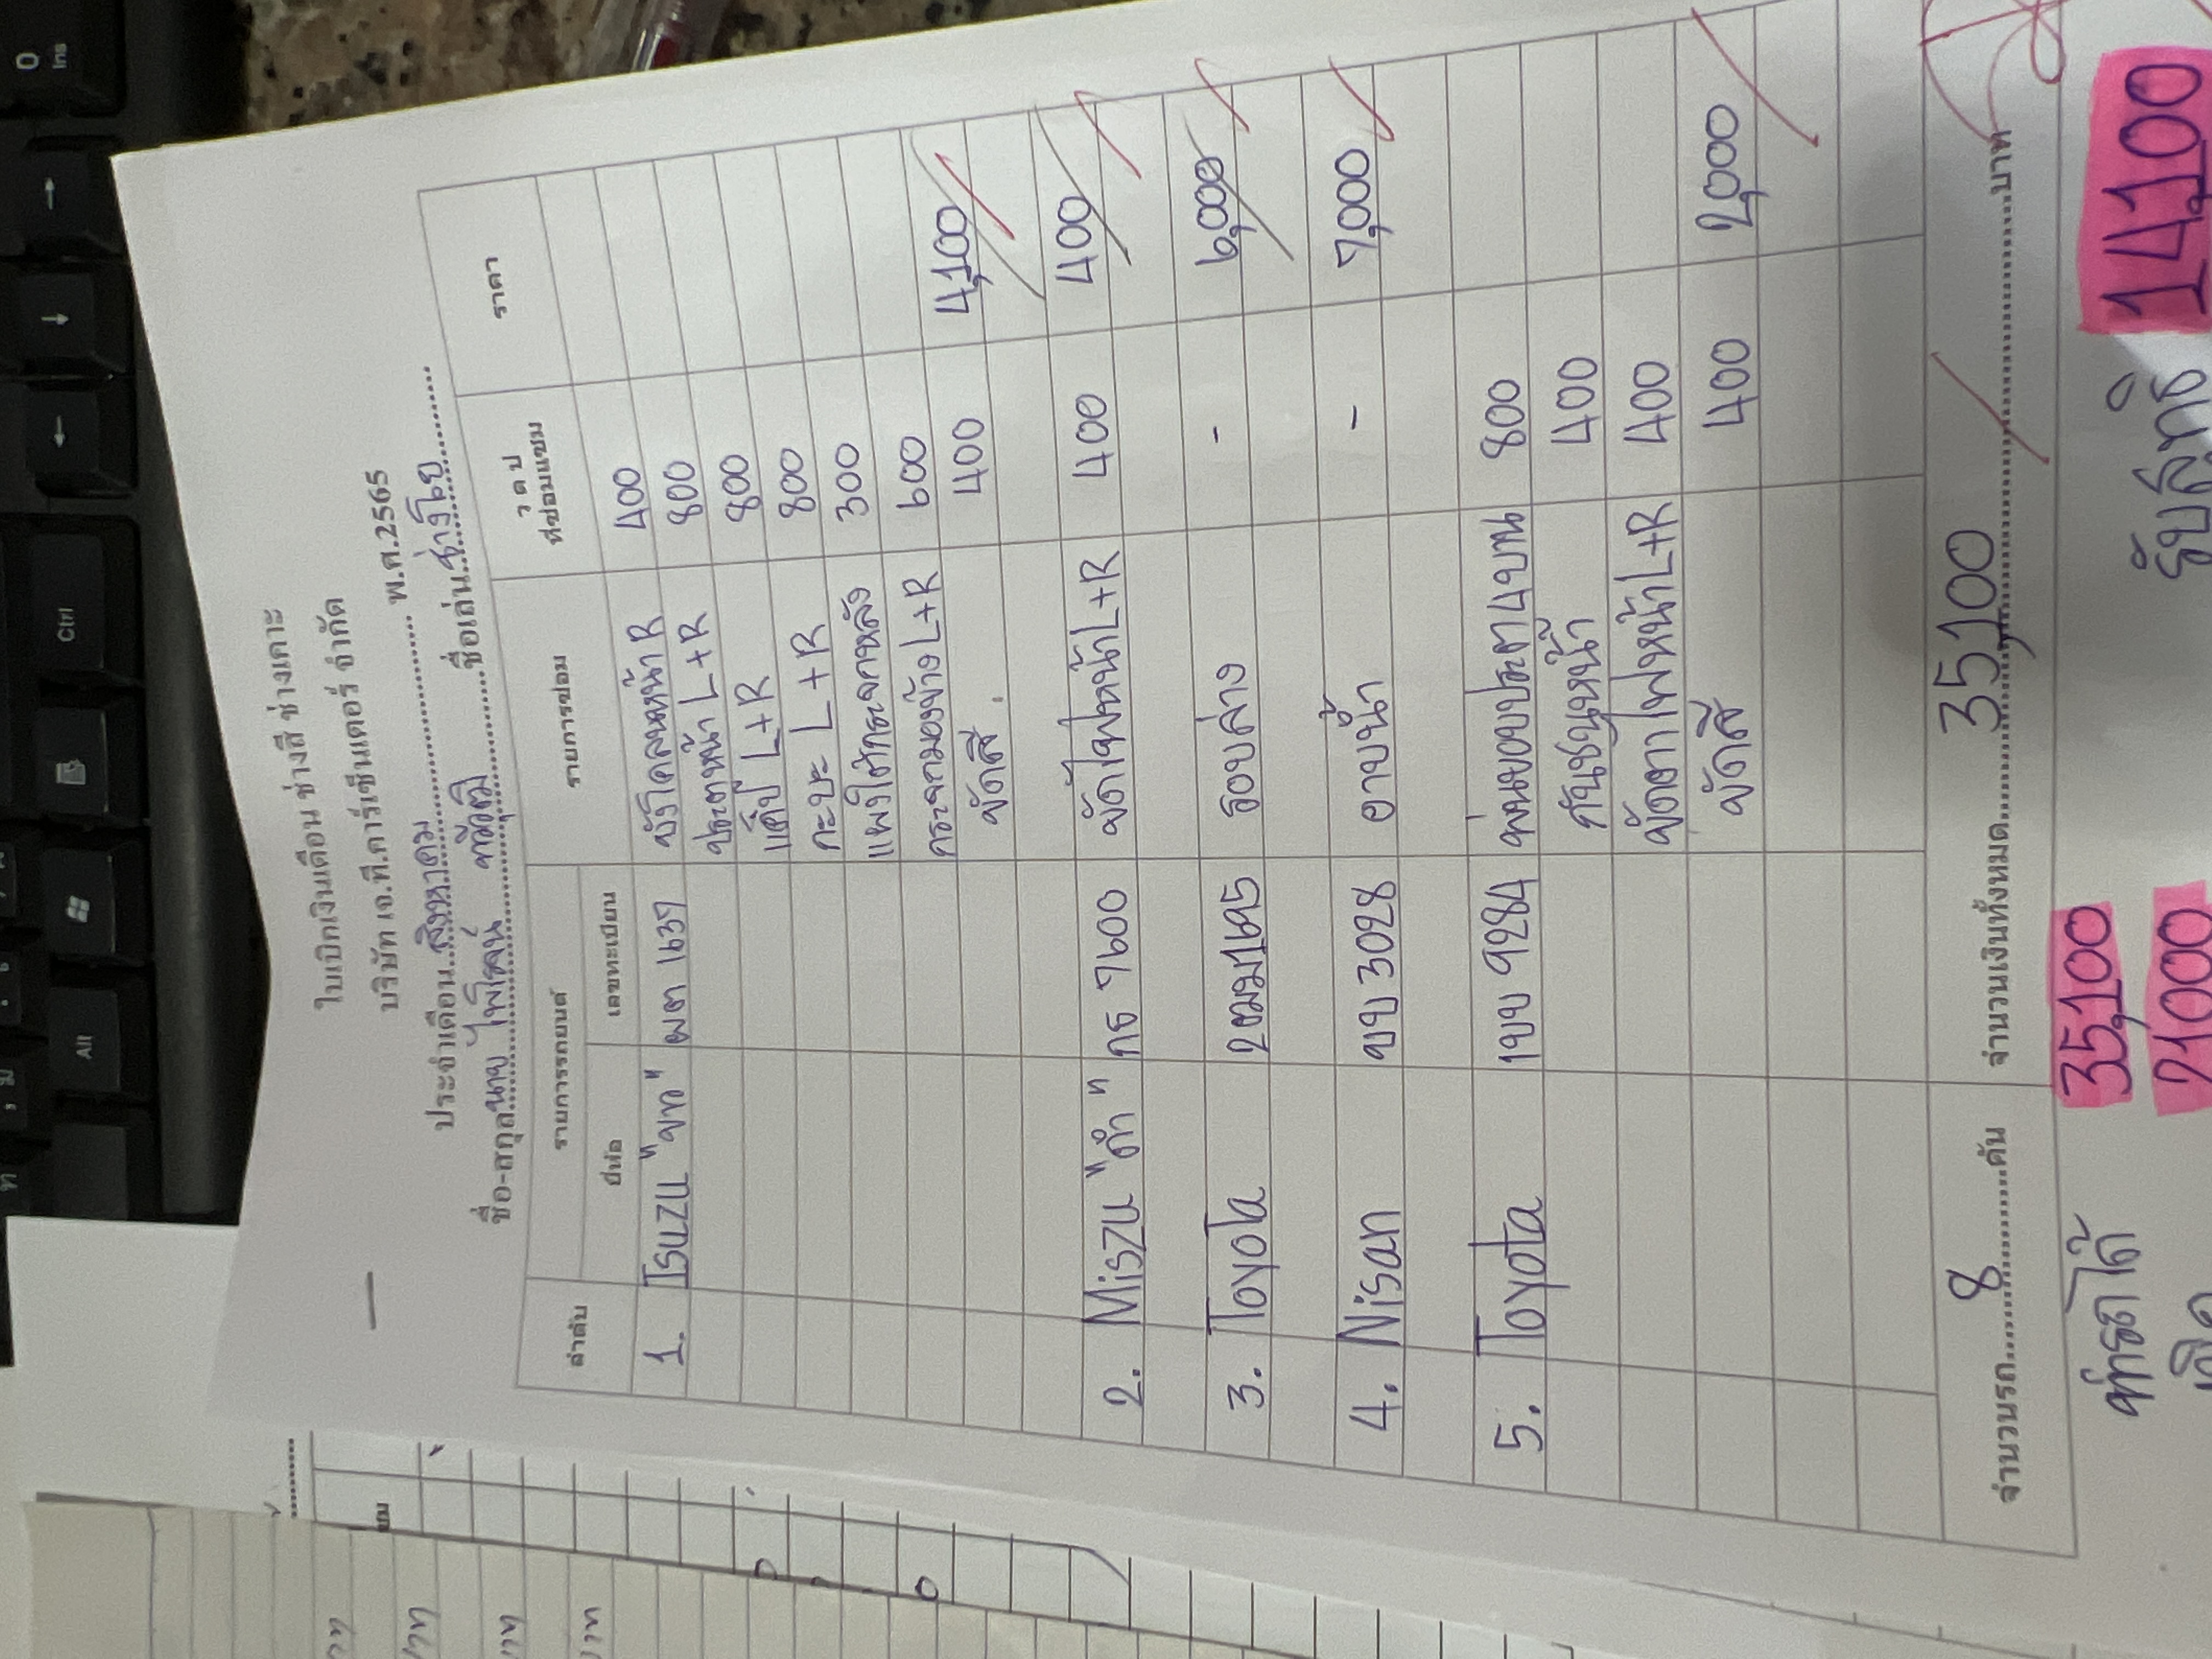 ใบเบิกเงินเดือน ช่างสี ช่างเคาะ
บริษัท เอ.ที.คาร์เซ็นเตอร์ จำกัด
ประจำเดือน สิงหาคม พ.ศ.2565
ชื่อ-สกุล นาย ไพโรจน์ ชื่อเล่น ช่างโย
ลำดับ รายการรถยนต์ รายการซ่อม ว ด ป ที่ซ่อมแซม ราคา
ยี่ห้อ เลขทะเบียน
1. Isuzu "ขาว" ผต 1637 บังโคลนหน้า R 400
ประตูหน้า L+R 800
แค็ป L+R 800
กะบะ L+R 800
แผงใต้กระจกหลัง 300
กระจกมองข้าง L+R 600 4,100
ขัดสี 400
2. Miszu "ดำ" กธ 7600 ขัดไฟหน้า L+R 400 400
3. Toyota 2ฒม1695 รอบล่าง - 6,000
4. Nisan ขบ 3028 อาบน้ำ - 7,000
5. Toyota 1ขบ 9284 พ่นขอบประตู 4 บาน 800
กันชนหน้า 400
ขัดตาไฟหน้า L+R 400
ขัดสี 400 2,000
จำนวนรถ 8 คัน จำนวนเงินทั้งหมด 35,100 บาท
ทำรถได้ 35,100 รับสุทธิ 14,100
เบิก 21,000
0
Ins
Ctrl
Alt